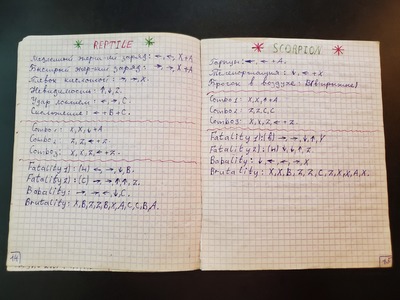 REPTILE
Медленный энерг-ий заряд: ←, ←, X+A
Быстрый энер-кий заряд: →, →, X+A
Плевок кислотой: →, →, X.
Невидимость: ↑, ↓, Z.
Удар локтем: ←, →, C.
Скольжение: ←+B+C.
Combo1: X,X,↓+A
Combo2: Z,Z,←+Z.
Combo3: X,X,Z,←+Z.
Fatality1: (Н) ←, ←, ↓, B.
Fatality2: (С) →, →, ↑, ↑, Z.
Babality: →, →, ←, ↓, C.
Brutality: X,B,Z,Z,B,X,A,C,C,B,A.
14
SCORPION
Гарпун: ←, ←, A.
Телепортация: ↓, ←, +Z
Бросок в воздухе: B(впрыжке)
Combo1: X,X,↑+A
Combo2: Z,Z,C,C
Combo3: X,X,Z,←+Z.
Fatality1: (Б) ←, →, ↓, ↑, Y
Fatality2: (Н) ↓, ↓, ↑, Z.
Babality: ↓, ←, ←, →, X
Brutality: X,X,B,Z,Z,C,Z,X,X,A,X.
15